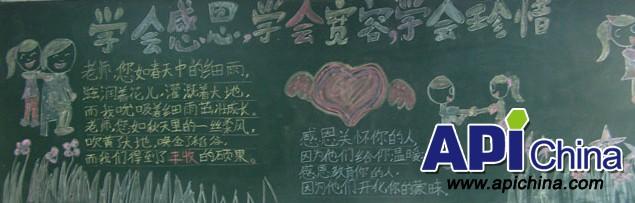 学会感恩,学会宽容,学会珍惜
老师,您如春天中的细雨,
滋润着花儿,灌溉着大地,
而我吮吸着细雨茁壮成长。
老师,您如秋天里的一丝柔风,
吹黄大地,唤金稻谷,
而我们得到了丰收的硕果。
感恩关怀你的人,
因为他们给你温暖
感恩教育你的人,
因为他们开化你的蒙昧
API China
www.apichina.com